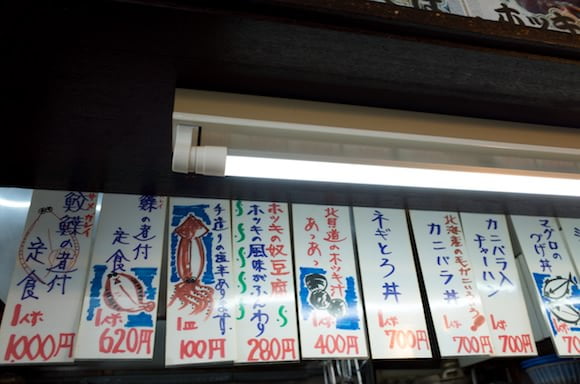 サメカレイ
鮫鰈の煮付
定食
1人前
1000円
鰈の煮付
定食
1人前
620円
手造りの塩辛あります。
1皿
100円
ホッキの奴豆腐
ホッキの風味がふんわり
280円
北海道のホッキ汁
あっあっ
1人前
400円
ネギとろ丼
1人前
700円
北海産の毛ガニ入り!
カニバラ丼
1人前
700円
カニバラ入
チャーハン
1人前
700円
マグロの
づけ丼